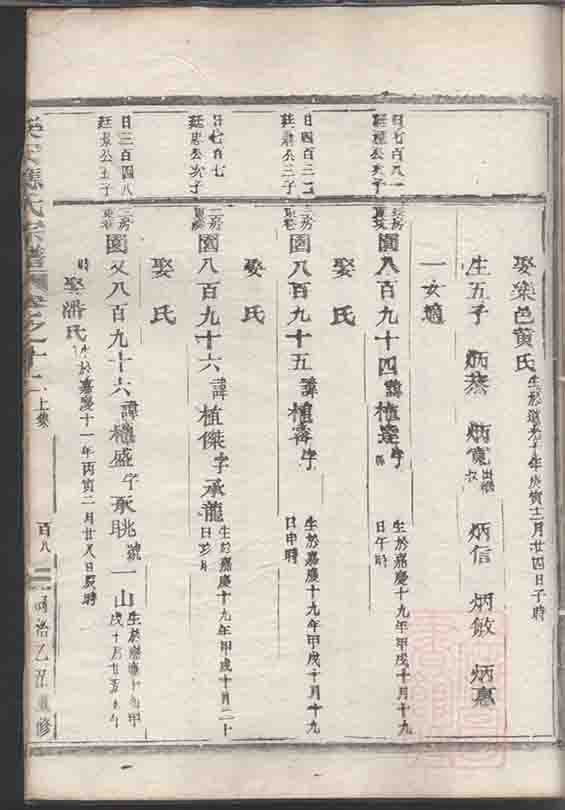 娶樂邑黃氏生於道光十年庚寅十二月廿四日子時
生五子 炳蔡 炳寬 炳信 炳敏 炳惠
一女適
園八百九十四諱植 字 生於嘉慶十九年甲戌十月十九日午時
娶氏
日四百三
廷 公三子
園八百九十五諱植 字 生於嘉慶十九年甲戌十月十九日申時
娶氏
日七百七
廷忠公次子
園八百九十六諱植傑字承龍 生於嘉慶十九年甲戌十月二十日亥時
娶氏
日三百四八
廷景公五子
園又八百九十六諱植盛字承眺號一山 生於嘉慶十九年甲戌十月廿五 午時
娶潘氏生於嘉慶十一年丙寅二月廿八日辰時
氏宗譜 卷之十二上集 百八 同治乙丑重修